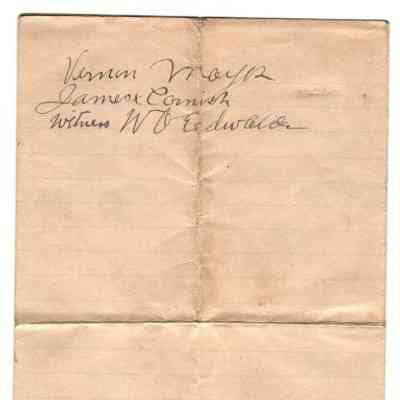 Vernon Mayor
James Cornish
Witness W O Eedwards